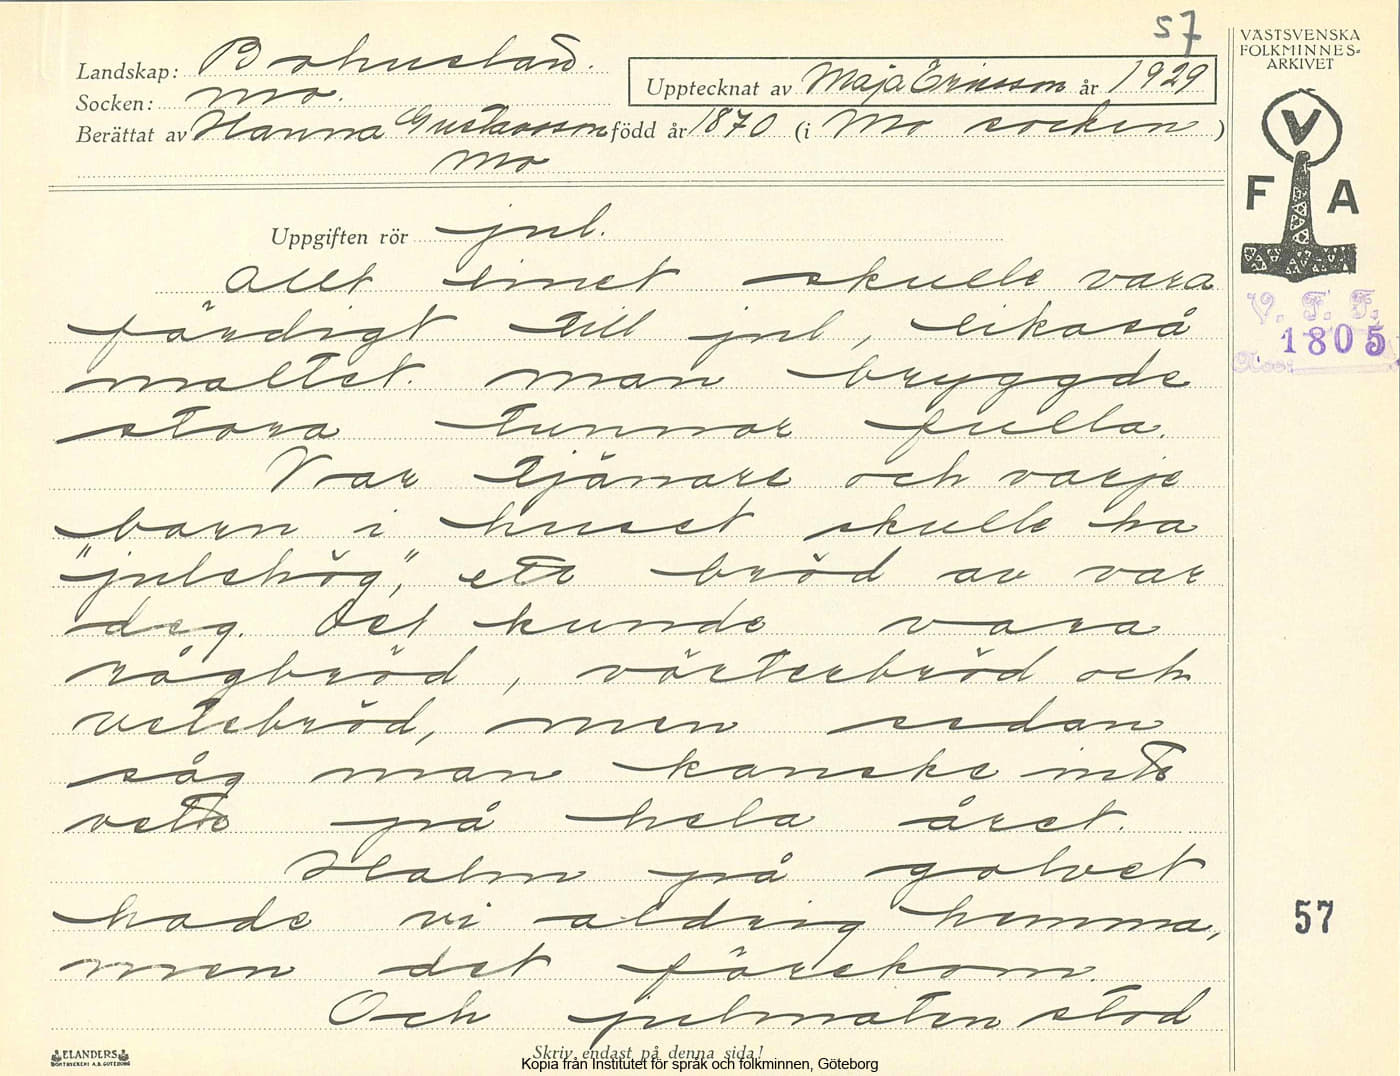 57
Landskap: Bohuslän.
Socken: Mo.
Upptecknat av Maja Ericsson år 1929
Berättat av Hanna Gustavsson född år 1870 (i Mo socken )
Mo
VÄSTSVENSKA
FOLKMINNES-
ARKIVET
V
F A
V. F. F.
1805
Uppgiften rör jul.
Allt linet skulle vara
färdigt till jul, likaså
maltet. Man bryggde
stora tunnor fulla.
Var tjänare och varje
barn i huset skulle ha
"julehög", ett bröd av var
deg. Det kunde vara
rågbröd, vörtesbröd och
vetebröd, men sedan
såg man kanske inte
vete på hela året.
Halm på golvet
hade vi aldrig hemma,
men det förekom.
Och julmaten stod
57
ELANDERS
BOKTRYCKERI A.B. GÖTEBORG
Skriv endast på denna sida!
Kopia från Institutet för språk och folkminnen, Göteborg